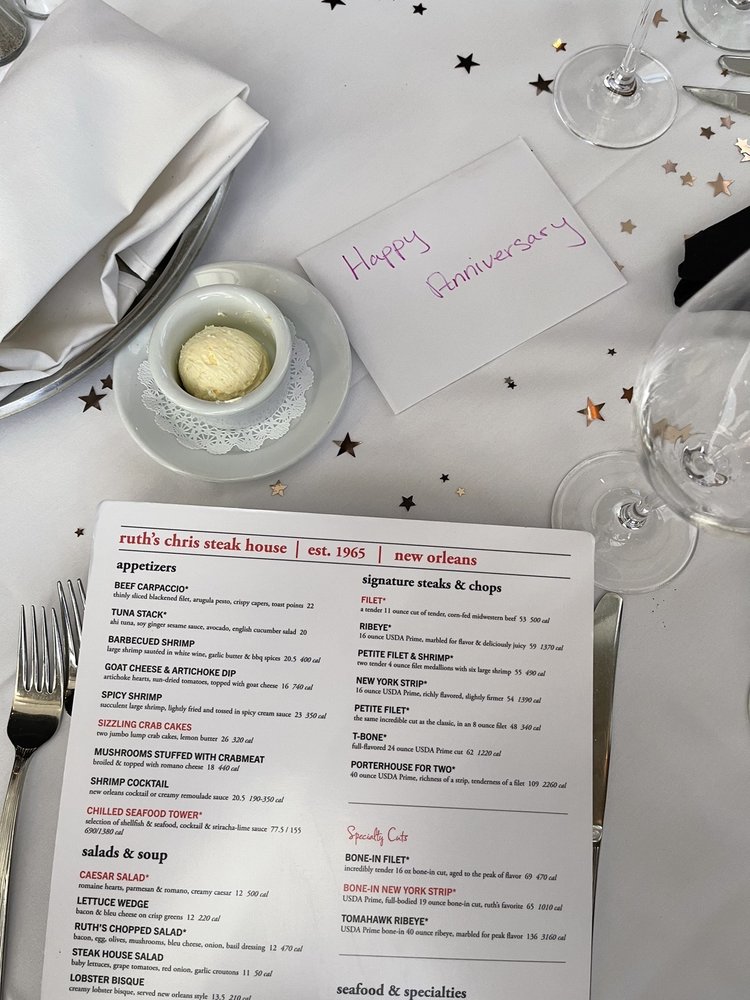 Happy
Anniversary
ruth's chris steak house | est. 1965 | new orleans
appetizers
BEEF CARPACCIO*
thinly sliced blackened filet, arugula pesto, crispy capers, toast points 22
TUNA STACK*
ahi tuna, soy ginger sesame sauce, avocado, english cucumber salad 20
BARBECUED SHRIMP
large shrimp sautéed in white wine, garlic butter & bbq spices 20.5 400 cal
GOAT CHEESE & ARTICHOKE DIP
artichoke hearts, sun-dried tomatoes, topped with goat cheese 16 740 cal
SPICY SHRIMP
succulent large shrimp, lightly fried and tossed in spicy cream sauce 23 350 cal
SIZZLING CRAB CAKES
two jumbo lump crab cakes, lemon butter 26 320 cal
MUSHROOMS STUFFED WITH CRABMEAT
broiled & topped with romano cheese 18 440 cal
SHRIMP COCKTAIL
new orleans cocktail or creamy remoulade sauce 20.5 190-350 cal
CHILLED SEAFOOD TOWER*
selection of shellfish & seafood, cocktail & sriracha-lime sauce 77.5 / 155
690/1380 cal
salads & soup
CAESAR SALAD*
romaine hearts, parmesan & romano, creamy caesar 12 500 cal
LETTUCE WEDGE
bacon & bleu cheese on crisp greens 12 220 cal
RUTH'S CHOPPED SALAD*
bacon, egg, olives, mushrooms, bleu cheese, onion, basil dressing 12 470 cal
STEAK HOUSE SALAD
baby lettuces, grape tomatoes, red onion, garlic croutons 11 50 cal
LOBSTER BISQUE
creamy lobster bisque, served new orleans style 13.5 210 cal
signature steaks & chops
FILET*
a tender 11 ounce cut of tender, corn-fed midwestern beef 53 500 cal
RIBEYE*
16 ounce USDA Prime, marbled for flavor & deliciously juicy 59 1370 cal
PETITE FILET & SHRIMP*
two tender 4 ounce filet medallions with six large shrimp 55 490 cal
NEW YORK STRIP*
16 ounce USDA Prime, richly flavored, slightly firmer 54 1390 cal
PETITE FILET*
the same incredible cut as the classic, in an 8 ounce filet 48 340 cal
T-BONE*
full-flavored 24 ounce USDA Prime cut 62 1220 cal
PORTERHOUSE FOR TWO*
40 ounce USDA Prime, richness of a strip, tenderness of a filet 109 2260 cal
Specialty Cuts
BONE-IN FILET*
incredibly tender 16 oz bone-in cut, aged to the peak of flavor 69 470 cal
BONE-IN NEW YORK STRIP*
USDA Prime, full-bodied 19 ounce bone-in cut, ruth's favorite 65 1010 cal
TOMAHAWK RIBEYE*
USDA Prime bone-in 40 ounce ribeye, marbled for peak flavor 136 3160 cal
seafood & specialties